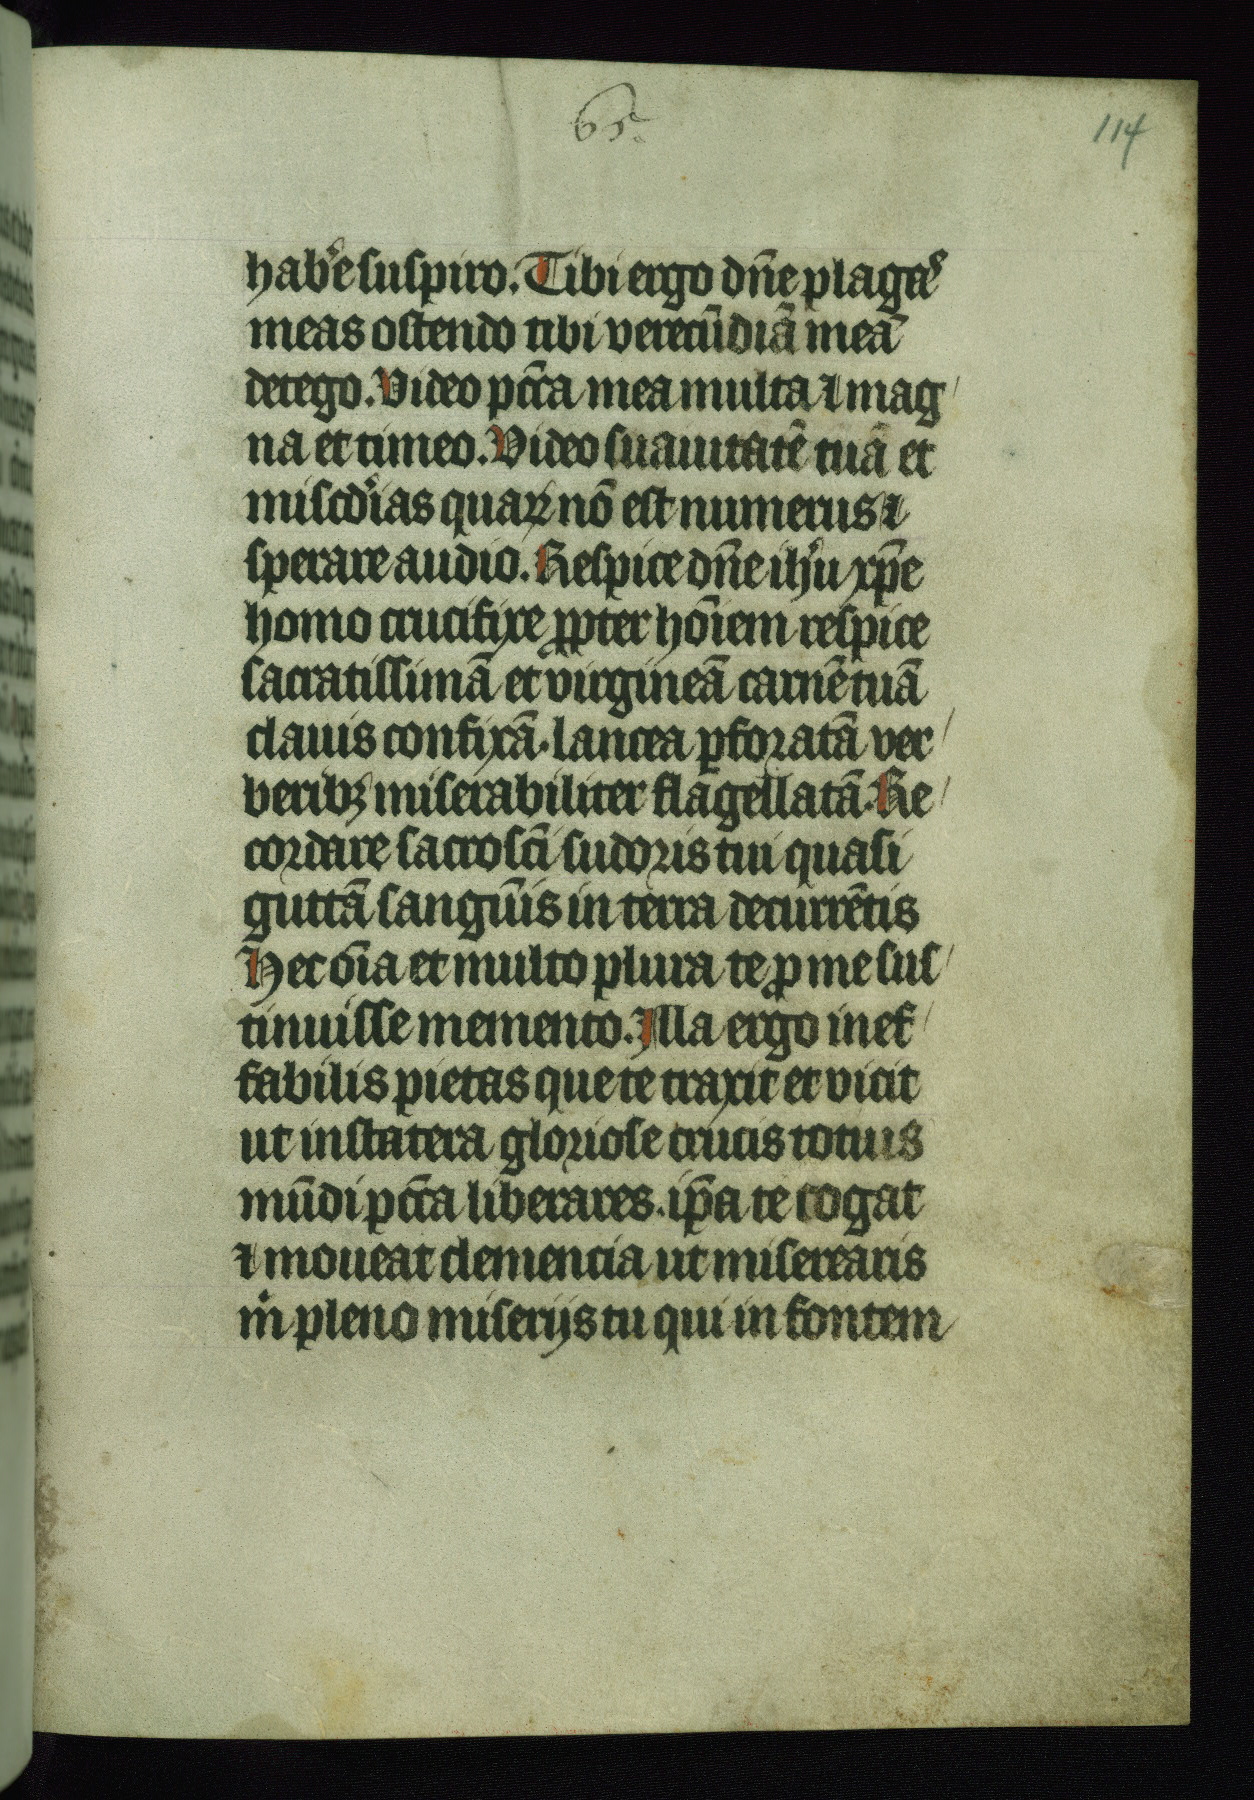 65.
114
hab̾e suspiro. Tibi ergo dn̄e plagas
meas ostendo tibi verecūdiā meā
detego. Video pctā mea multa ⁊ mag/
na et timeo. Video suauitatē tuā et
misc̄dias quaꝝ nō est numerus ⁊
sperare audio. Respice dn̄e ih̾u xp̄e
homo crucifixe ꝓpter hōiem respice
sacratissimā et virgineā carnē tuā
clauis confixā. lancea ꝑforatā ver/
beribꝫ miserabiliter flagellatā. Re/
cordare sacrosc̄i sudoris tui quasi
guttā sangūis in terra decurrētis
Hec ōia et multo plura te ꝓ me sus/
tinuisse memento. Illa ergo inef/
fabilis pietas que te traxit et vicit
ut in statera gloriose crucis totius
mūdi pctā liberares. ip̄a te cogat
⁊ moueat clemencia ut miserearis
mͥ pleno miserijs tu qui in fontem